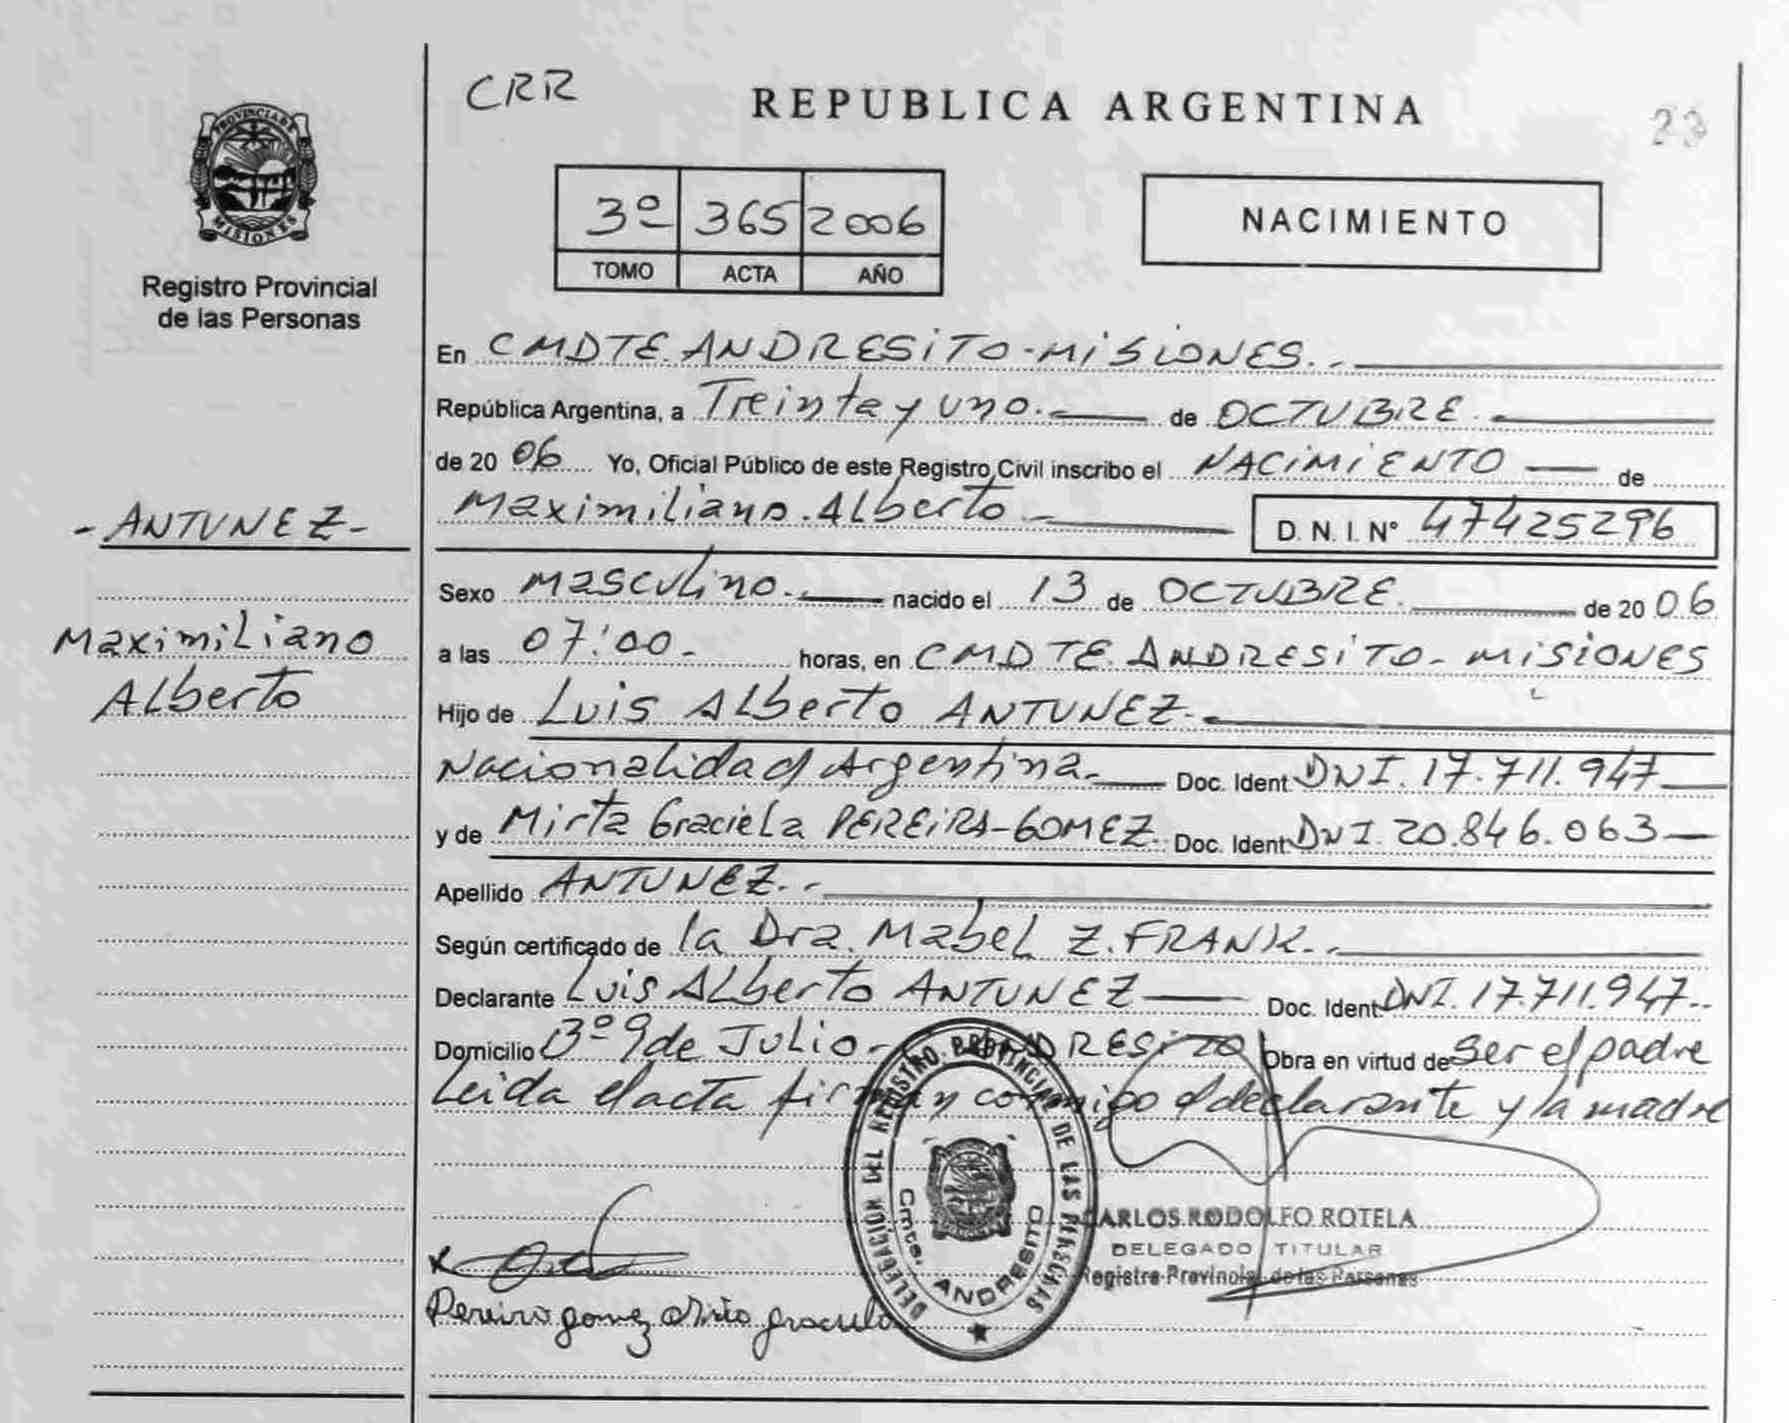 PROVINCIA DE
MISIONES
Registro Provincial
de las Personas
- ANTUNEZ -
Maximiliano
Alberto
CRR
REPUBLICA ARGENTINA
23
3º 365 2006
TOMO ACTA AÑO
NACIMIENTO
En CMDTE. ANDRESITO - MISIONES.
República Argentina, a Treinta y uno. de OCTUBRE.
de 20 06 Yo, Oficial Público de este Registro Civil inscribo el NACIMIENTO de
Maximiliano Alberto D. N. I. Nº 47425296
Sexo masculino. nacido el 13 de OCTUBRE. de 20 06
a las 07:00 - horas, en CMDTE. ANDRESITO - MISIONES
Hijo de Luis Alberto ANTUNEZ.
Nacionalidad Argentina. Doc. Ident DNI. 17.711.947
y de Mirta Graciela PEREIRA-GOMEZ. Doc. Ident DNI. 20.846.063
Apellido ANTUNEZ.
Según certificado de la Dra. Mabel Z. FRANK.
Declarante Luis Alberto ANTUNEZ Doc. Ident DNI. 17.711.947
Domicilio Bº 9 de Julio - ANDRESITO Obra en virtud de ser el padre
Leida el acta firman conmigo el declarante y la madre
DELEGACIÓN DEL REGISTRO PROVINCIAL DE LAS PERSONAS
Cmte. ANDRESITO
CARLOS RODOLFO ROTELA
DELEGADO TITULAR
Registro Provincial de las Personas
Pereira gomez Mirta graciela